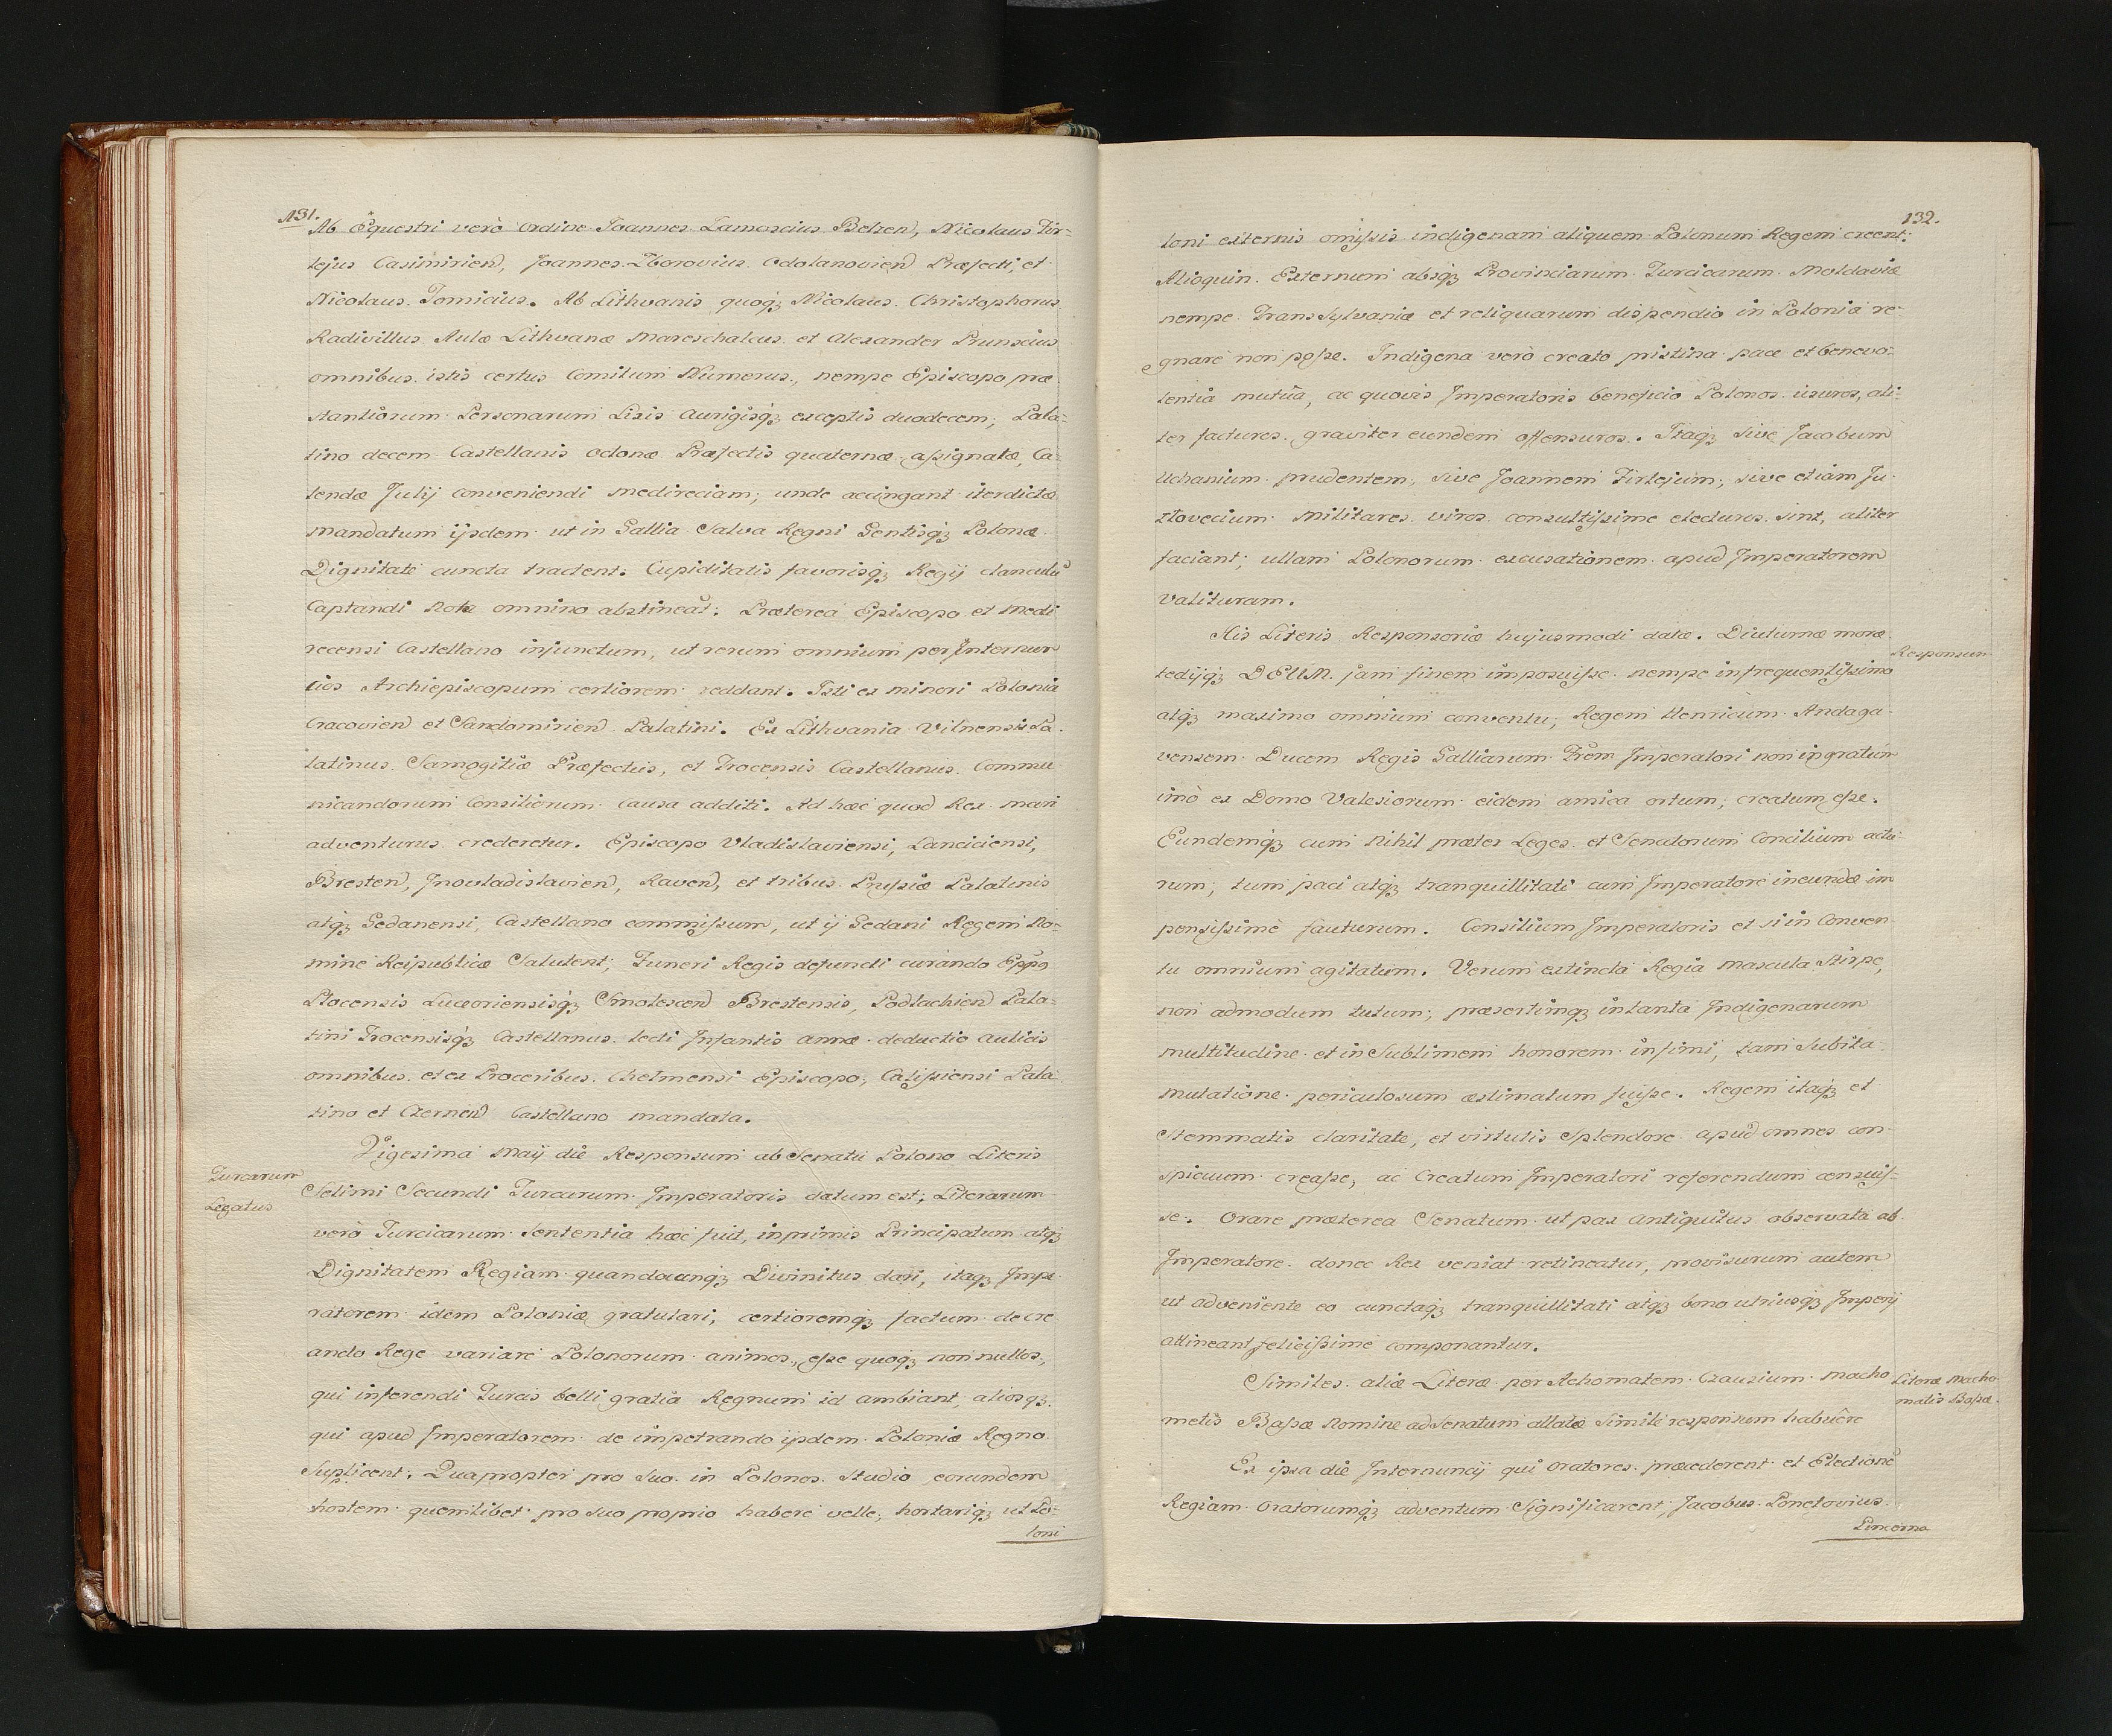 131.
Ab Equestri verò ordine Joannes Zamoscius Belzen, Nicolaus Fir-
lejus Casimirien, Joannes Zborovius Odolanovien Præfecti, et
Nicolaus Tomicius. Ab Lithvanis quoqz Nicolaus Christophorus
Radivillus Aulæ Lithvanæ Mareschalcus et Alexander Prunscius
omnibus istis certus Comitum Numerus, nempe Episcopo præ
stantiorum Personarum Lixis Aurigisqz exceptis duodecem, Pala-
tino decem Castellanis octonæ Præfectis quaternæ assignatæ, Ca-
lendæ Julij conveniendi Medireciam; unde accingant iter dictæ
mandatum ijsdem ut in Gallia Salva Regni Gentisqz Polonæ
Dignitate cuncta tractent. Cupiditatis favorisqz Regij clanculũ
Captandi Nota omnino abstineãt. Prætereà Episcopo et Medi
recensi Castellano injunctum, ut rerum omnium per Internun
cios Archiepiscopum certiorem reddant. Isti ex minori Polonia
Cracovien et Sandomirien Palatini. Ex Lithvania Vilnensis Pa-
latinus Samogitiæ Præfectus, et Trocensis Castellanus Commu
nicandorum Consiliorum causa additi. Ad hæc quod Rex mari
adventurus crederetur. Episcopo Vladislaviensi, Lanciciensi,
Bresten, Inovladislavien, Raven, et tribus Prussiæ Palatinis
atqz Gedanensi, Castellano commissum, ut ij Gedani Regem No-
mine Reipublicæ Salutent; Funeri Regis defuncti curando Eppo
Plocensis Luceoriensisqz Smolescen Brestensis, Podlachien Pala-
tini Trocensisqz Castellanus lecti Infantis Annæ deductio aulicis
omnibus et ex Proceribus Chelmensi Episcopo, Calissiensi Pala
tino et Czernen Castellano mandata.
Turcarum
Legatus
Vigesima Maij die Responsum ab Senatu Polono Literis
Selimi Secundi Turcarum Imperatoris datum est; Literarum
verò Turcicarum Sententia hæc fuit, inprimis Principatum atqz
Dignitatem Regiam quandocunqz Divinitus dari, itaqz Impe
ratorem idem Poloniæ gratulari, certioremqz factum de cre
ando Rege variare Polonorum animos, esse quoqz nonnullos,
qui inferendi Turcis belli gratiâ Regnum id ambiant, aliosqz
qui apud Imperatorem de impetrando ijsdem Poloniæ Regno
Suplicent. Quapropter pro Suo in Polonos Studio eorundem
hostem quemlibet pro suo proprio habere velle, hortariqz ut Po-
loni
132.
loni externis omissis indigenam aliquem Polonum Regem creent:
Alioquin Externum absqz Provinciarum Turcicarum Moldaviæ
nempe Transylvaniæ et reliquarum dispendio in Poloniâ re-
gnare non posse. Indigena verò creato pristina pace et benevo-
lentiâ mutuâ, ac quovis Imperatoris beneficio Polonos usuros, ali-
ter facturos graviter eundem offensuros. Itaqz sive Jacobum
Uchanium prudentem, sive Joannem Firlejum, sive etiam Ju-
zlovecium Militares viros consultissime electuros sint, aliter
faciant, ullam Polonorum excusationem apud Imperatorem
valituram.
Responsum
His Literis Responsoriæ hujusmodi datæ. Diuturnæ moræ
tedijqz DEUM jam finem imposuisse nempe in frequentissimo
atqz maximo omnium conventu, Regem Henricum Andaga-
vensem Ducem Regis Galliarum Frem Imperatori non ingratum
imò ex Domo Valesiorum eidem amica ortum, creatum esse.
Eundemqz cum Nihil præter Leges et Senatorum Concilium actu-
rum, tum paci atqz tranquillitati cum Imperatore ineundæ im
pensissimè fauturum. Consilium Imperatoris et si in Conven
tu omnium agitatum. Verum extincta Regia mascula Stirpe,
non admodum tutum, præsertimqz in tanta Indigenarum
multitudine et in Sublimem honorem infimi, tam Subita
mutatione periculosum æstimatum fuisse. Regem itaqz et
stemmatis claritate, et virtutis Splendore apud omnes con-
spicuum creasse, ac Creatum Imperatori referendum censuis-
se. Orare præterea Senatum ut pax antiquitus observata ab
Imperatore donec Rex veniat retineatur, provisurum autem
ut adveniente eo cunctaqz tranquillitati atqz bono utriusqz Imperij
attineant felicissimè componantur.
Literæ Macho
metis Bassæ.
Similes aliæ Literæ per Achomatem Czausium Macho
metis Bassæ Nomine ad Senatum allatæ Simile responsum habuêre
Ex ipsa die Internuncij qui oratores præcederent et Electionẽ
Regiam Oratorumqz adventum Significarent, Jacobus Ponetovius
Pincerna